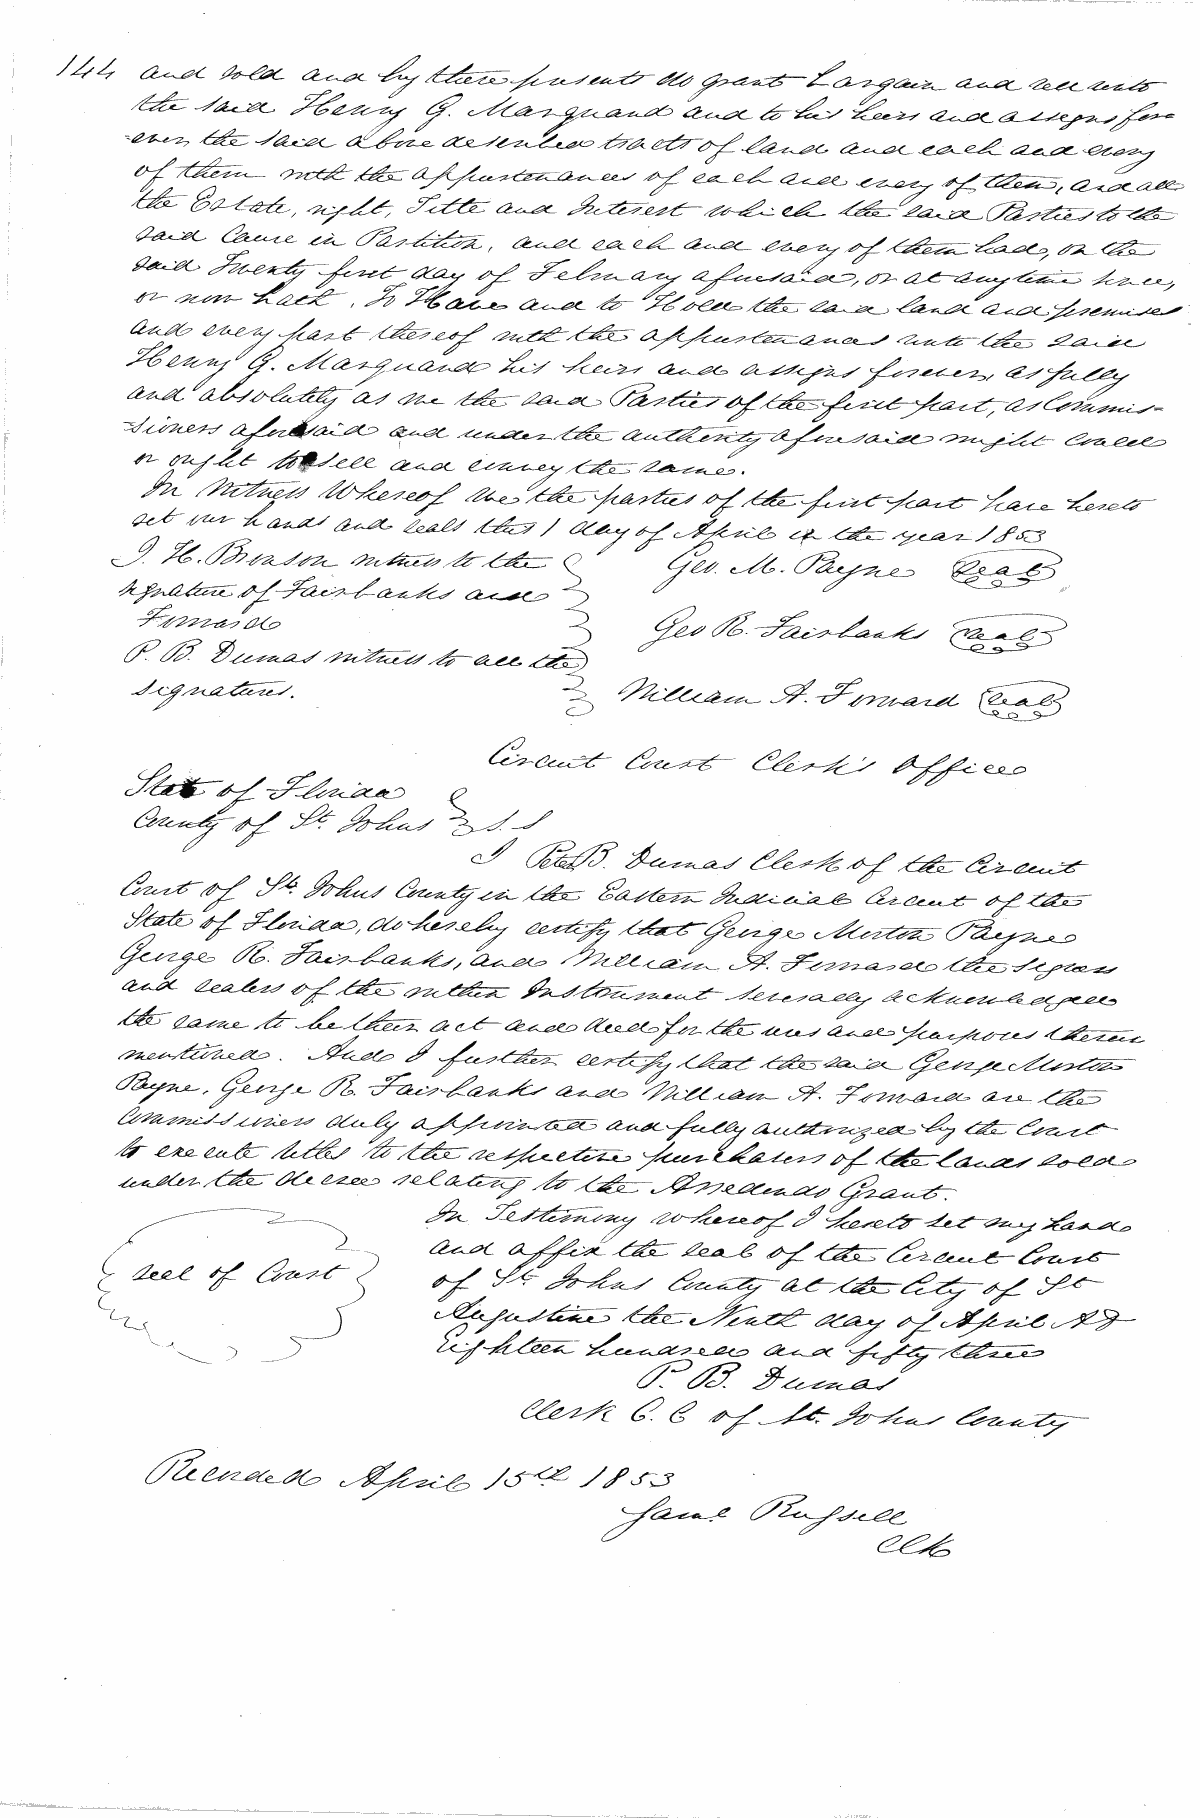 144 and sold and by these presents do grant bargain and sell unto
the said Henry G. Marquand and to his heirs and assigns fore
-ever, the said above described tracts of land and each and every
of them with the appurtenances of each and every of them, and all
the Estate, right, Title and Interest which the said Parties to the
said Cause in Partition, and each and every of them had, on the
said Twenty first day of February aforesaid, or at anytime since,
or now hath. To Have and to Hold the said land and premises
and every part thereof with the appurtenances unto the said
Henry G. Marquand his heirs and assigns forever, as fully
and absolutely as we the said Parties of the first part, as Commis-
-sioners aforesaid and under the authority aforesaid might could
or ought to sell and convey the same.
In Witness Whereof We the parties of the first part have hereto
set our hands and seals this 1 day of April in the year 1853
I. H. Bronson witness to the Geo. M. Payne Seal
signature of Fairbanks and
Forward Geo R. Fairbanks Seal
P. B. Dumas witness to all the
signatures. William A. Forward Seal
Circuit Court Clerk's Office
State of Florida
County of St. Johns S.S
I Peter B. Dumas Clerk of the Circuit
Court of St. Johns County in the Eastern Judicial Circuit of the
State of Florida, do hereby certify that George Morton Payne
George R. Fairbanks, and William A. Forward the signers
and sealers of the within Instrument severally acknowledged
the same to be their act and deed for the uses and purposes therein
mentioned. And I further certify that the said George Morton
Payne, George R. Fairbanks and William A. Forward are the
Commissioners duly appointed and fully authorized by the Court
to execute titles to the respective purchasers of the lands sold
under the decree relating to the Arredondo Grant.
In Testimony whereof I hereto set my hand
and affix the seal of the Circuit Court
seal of Court of St. Johns County at the City of St
Augustine the Ninth day of April AD
Eighteen hundred and fifty three
P. B. Dumas
Clerk C. C of St. Johns County
Recorded April 15th 1853
Saml Russell
Clk